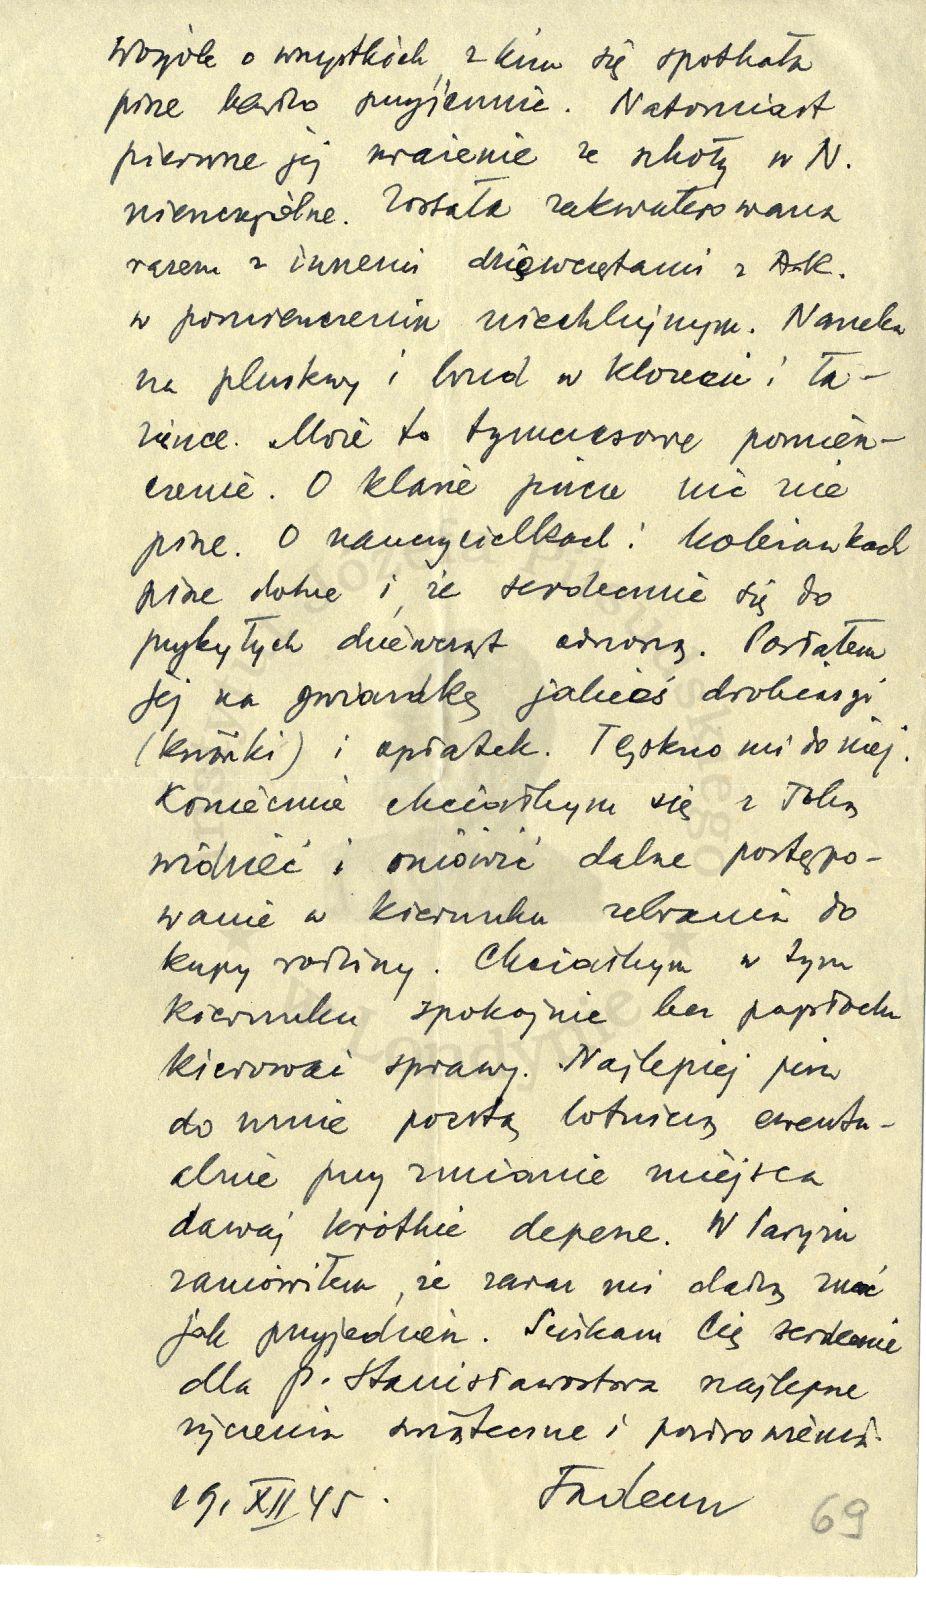 Wogóle o wszystkich, z kim się spotkała
pisze bardzo przyjemnie. Natomiast
pierwsze jej wrażenie ze szkoły w N.
nieszczególne. Została zakwaterowana
razem z innemi dziewczętami z A.K.
w pomieszczeniu niechlujnym. Narzeka
na pluskwy i brud w klozecie i ła-
zience. Może to tymczasowe pomiesz-
czenie. O klasie pisze nic nie
pisze. O nauczycielkach i koleżankach
pisze dobrze i, że serdecznie się do
przybyłych dziewcząt odnoszą. Posłałem
jej na gwiazdkę jakieś drobiazgi
(książki) i opłatek. Tęskno mi do niej.
Koniecznie chciałbym się z Tobą
widzieć i omówić dalsze postępo-
wanie w kierunku zebrania do
kupy rodziny. Chciałbym w tym
kierunku spokojnie bez popłochu
kierować sprawy. Najlepiej pisz
do mnie pocztą lotniczą ewentu-
alnie przy zmianie miejsca
dawaj krótkie depesze. W Paryżu
zamówiłem, że zaraz mi dadzą znać
jak przyjedziesz. Ściskam Cię serdecznie
dla p. Stanisławostwa najlepsze
życzenia świąteczne i pozdrowienia.
19. XII 45. Tadeusz
69
Londynie